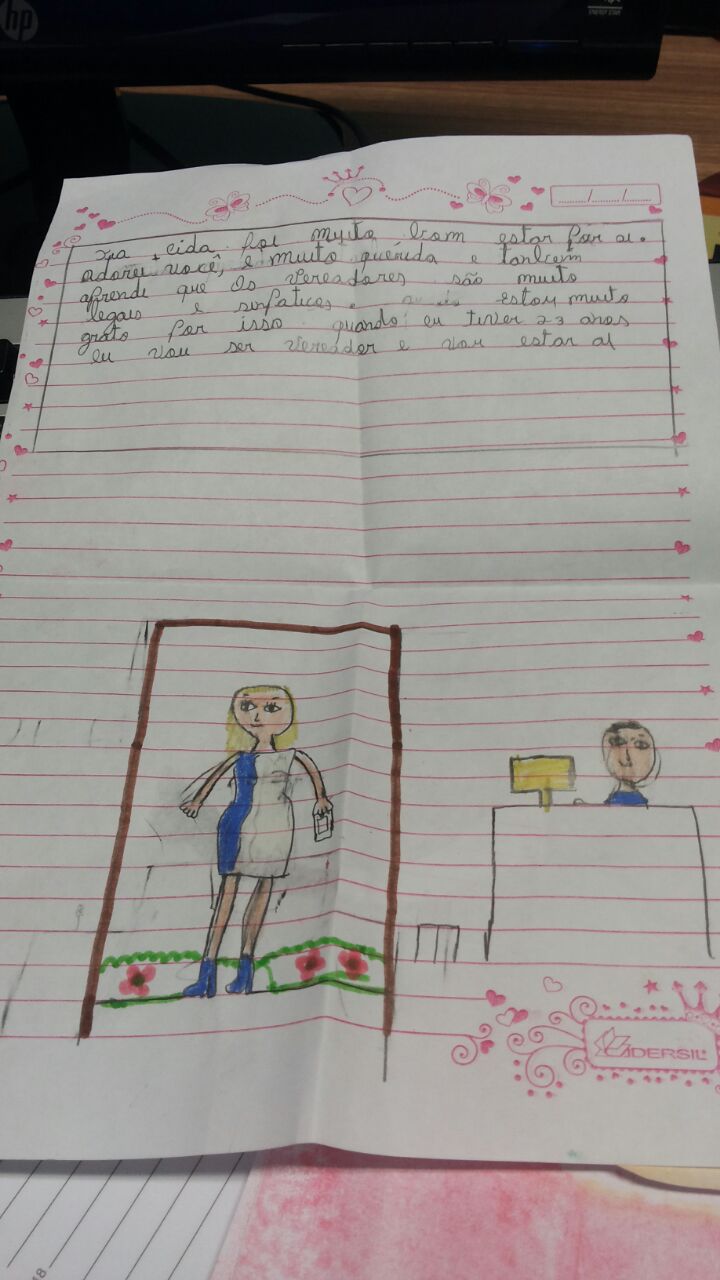 hp
ENERGY STAR
cida foi muito bom estar por ai.
adorei você, e muito querida e tanbem
aprende que os vereadores são muito
legais e sinpaticos e estou muito
grato por isso quando eu tiver 23 anos
eu vou ser vereador e vou estar ai
LIDERSIL